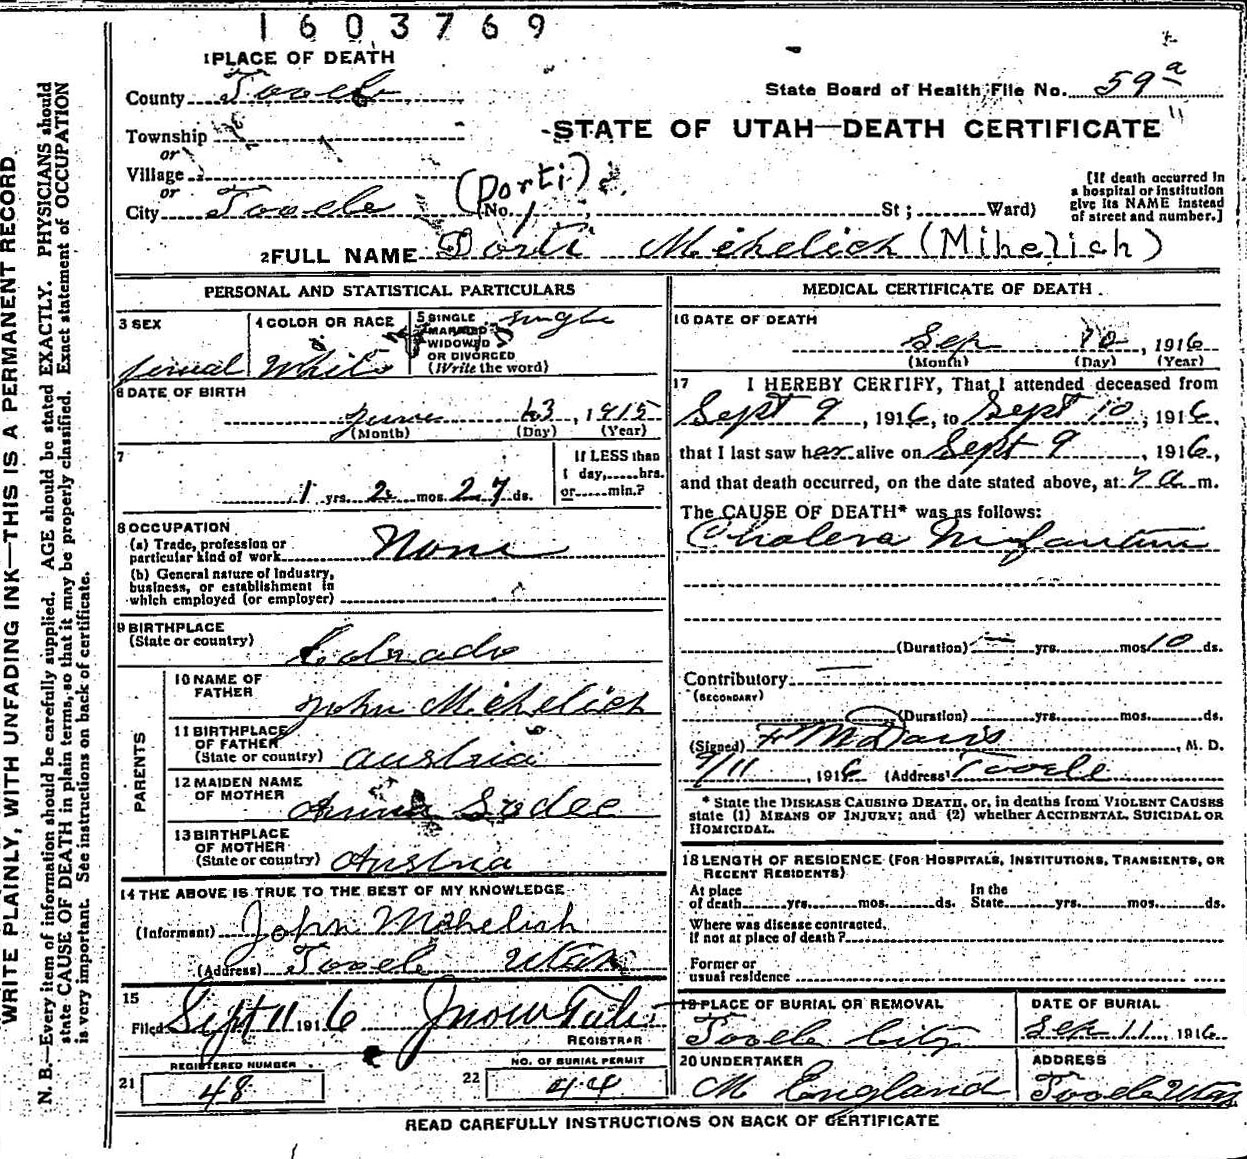 1603769
1 PLACE OF DEATH
County Tooele
State Board of Health File No. 59 a
Township
or
STATE OF UTAH—DEATH CERTIFICATE
Village
or
City Tooele (No. ; St ; Ward)
(Dorti)
[If death occurred in
a hospital or institution
give its NAME instead
of street and number.]
2 FULL NAME Dorti Mihelich (Mihelich)
PERSONAL AND STATISTICAL PARTICULARS
3 SEX
4 COLOR OR RACE
5 SINGLE
MARRIED
WIDOWED
OR DIVORCED
(Write the word)
single
femal White
6 DATE OF BIRTH
June 13, 1915
(Month) (Day) (Year)
7
If LESS than
1 day, hrs.
or min.?
1 yrs. 2 mos. 27 ds.
8 OCCUPATION
(a) Trade, profession or
particular kind of work None
(b) General nature of Industry,
business, or establishment in
which employed (or employer)
9 BIRTHPLACE
(State or country)
Colorado
PARENTS
10 NAME OF
FATHER
John Mihelich
11 BIRTHPLACE
OF FATHER
(State or country) Austria
12 MAIDEN NAME
OF MOTHER
Anna Sodec
13 BIRTHPLACE
OF MOTHER
(State or country) Austria
14 THE ABOVE IS TRUE TO THE BEST OF MY KNOWLEDGE
(Informant) John Mihelich
(Address) Tooele Utah
15
Filed Sept 11 1916
REGISTRAR
REGISTERED NUMBER
21 48
NO. OF BURIAL PERMIT
22 44
MEDICAL CERTIFICATE OF DEATH
16 DATE OF DEATH
Sep 10, 1916
(Month) (Day) (Year)
17 I HEREBY CERTIFY, That I attended deceased from
Sept 9, 1916, to Sept 10, 1916,
that I last saw her alive on Sept 9, 1916,
and that death occurred, on the date stated above, at 7 a m.
The CAUSE OF DEATH* was as follows:
Cholera Infantum
(Duration) yrs. mos 10 ds.
Contributory
(SECONDARY)
(Duration) yrs. mos. ds.
(Signed) F M Davis, M. D.
9/11, 1916 (Address) Tooele
* State the DISEASE CAUSING DEATH, or, in deaths from VIOLENT CAUSES
state (1) MEANS OF INJURY; and (2) whether ACCIDENTAL, SUICIDAL OR
HOMICIDAL.
18 LENGTH OF RESIDENCE (FOR HOSPITALS, INSTITUTIONS, TRANSIENTS, OR
RECENT RESIDENTS)
At place
of death yrs. mos. ds.
In the
State yrs. mos. ds.
Where was disease contracted,
If not at place of death?
Former or
usual residence
19 PLACE OF BURIAL OR REMOVAL
Tooele City
DATE OF BURIAL
Sep 11, 1916
20 UNDERTAKER
M England
ADDRESS
Tooele Utah
READ CAREFULLY INSTRUCTIONS ON BACK OF CERTIFICATE
WRITE PLAINLY, WITH UNFADING INK—THIS IS A PERMANENT RECORD
N. B.—Every item of information should be carefully supplied. AGE should be stated EXACTLY. PHYSICIANS should
state CAUSE OF DEATH in plain terms, so that it may be properly classified. Exact statement of OCCUPATION
is very important. See instructions on back of certificate.